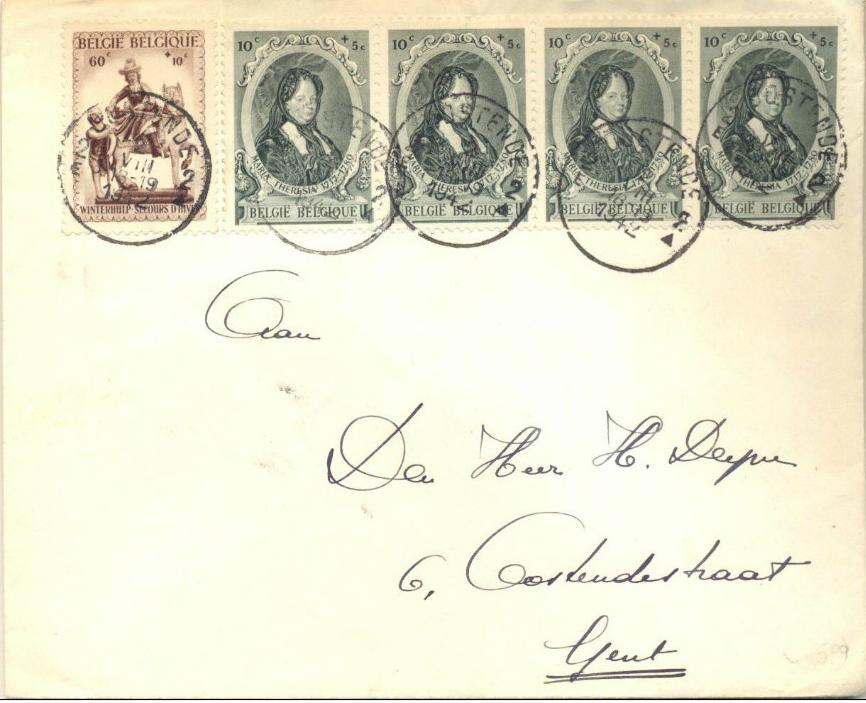 BELGIË BELGIQUE
60c +10c
WINTERHULP-SECOURS D'HIVER
10c +5c
MARIA THERESIA 1717-1780
BELGIË BELGIQUE
10c +5c
MARIA THERESIA 1717-1780
BELGIË BELGIQUE
10c +5c
MARIA THERESIA 1717-1780
BELGIË BELGIQUE
10c +5c
MARIA THERESIA 1717-1780
BELGIË BELGIQUE
OOSTENDE 2
VIII
19
1942
Aan
Den Heer H.
6, Oostendestraat
Gent